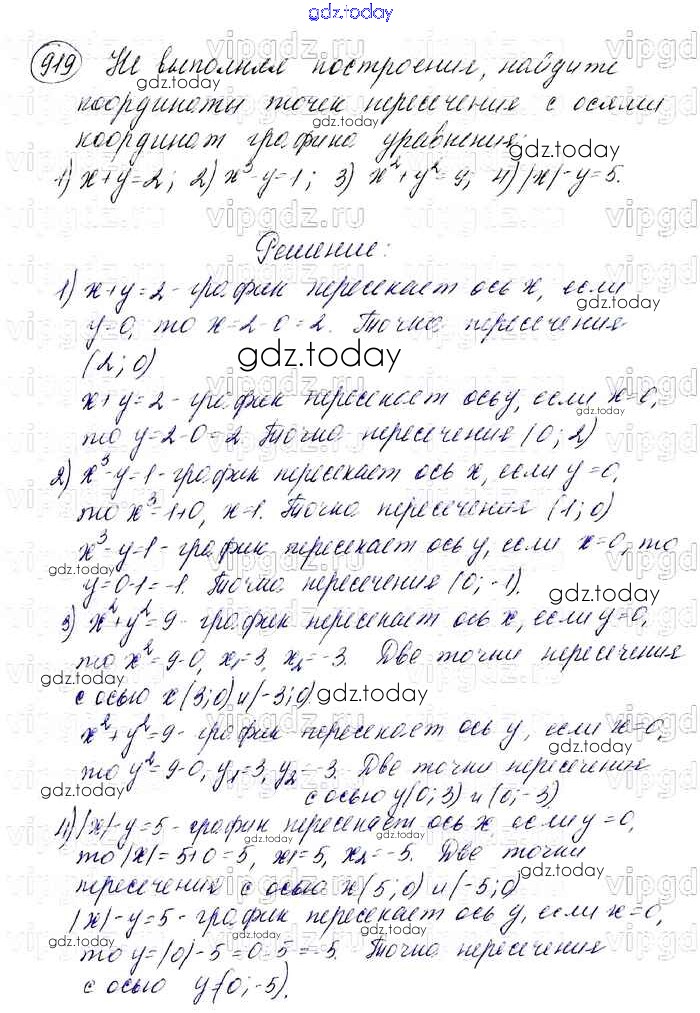 gdz.today
919 Не выполняя построения, найдите
координаты точек пересечения с осями
координат графика уравнения:
1) x+y=2; 2) x³-y=1; 3) x²+y²=9; 4) |x|-y=5.
Решение:
1) x+y=2 - график пересекает ось x, если
y=0, то x=2-0=2. Точка пересечения
(2; 0)
x+y=2 - график пересекает ось y, если x=0,
то y=2-0=2. Точка пересечения (0; 2)
2) x³-y=1 - график пересекает ось x, если y=0,
то x³=1+0, x=1. Точка пересечения (1; 0)
x³-y=1 - график пересекает ось y, если x=0, то
y=0-1=-1. Точка пересечения (0; -1).
3) x²+y²=9 - график пересекает ось x, если y=0,
то x²=9-0, x₁=3, x₂=-3. Две точки пересечения
с осью x (3; 0) и (-3; 0)
x²+y²=9 - график пересекает ось y, если x=0,
то y²=9-0, y₁=3, y₂=-3. Две точки пересечения
с осью y (0; 3) и (0; -3)
4) |x|-y=5 - график пересекает ось x, если y=0,
то |x|=5+0=5, x₁=5, x₂=-5. Две точки
пересечения с осью x (5; 0) и (-5; 0)
|x|-y=5 - график пересекает ось y, если x=0,
то y=|0|-5=0-5=-5. Точка пересечения
с осью y (0; -5).